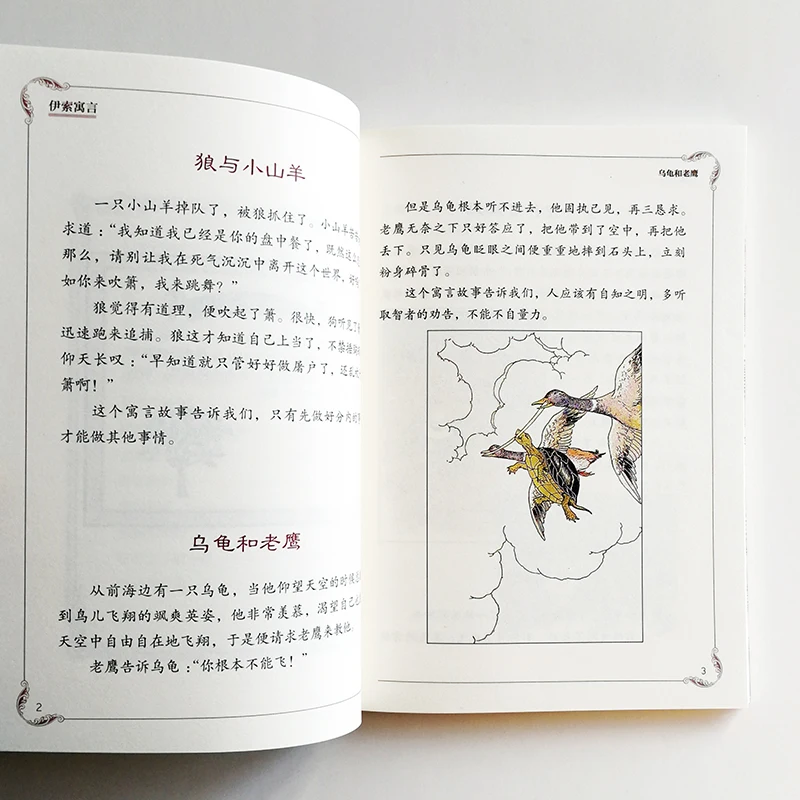 伊索寓言
狼与小山羊
一只小山羊掉队了，被狼抓住了。小山羊
求道：“我知道我已经是你的盘中餐了，既然
那么，请别让我在死气沉沉中离开这个世界，
如你来吹箫，我来跳舞？”
狼觉得有道理，便吹起了箫。很快，狗听见了
迅速跑来追捕。狼这才知道自己上当了，不禁
仰天长叹：“早知道就只管好好做屠户了，还
箫啊！”
这个寓言故事告诉我们，只有先做好分内的
才能做其他事情。
乌龟和老鹰
从前海边有一只乌龟，当他仰望天空的时候
到鸟儿飞翔的飒爽英姿，他非常羡慕，渴望自己
天空中自由自在地飞翔，于是便请求老鹰来教他。
老鹰告诉乌龟：“你根本不能飞！”
2
乌龟和老鹰
但是乌龟根本听不进去，他固执己见，再三恳求。
老鹰无奈之下只好答应了，把他带到了空中，再把他
丢下。只见乌龟眨眼之间便重重地摔到石头上，立刻
粉身碎骨了。
这个寓言故事告诉我们，人应该有自知之明，多听
取智者的劝告，不能不自量力。
3